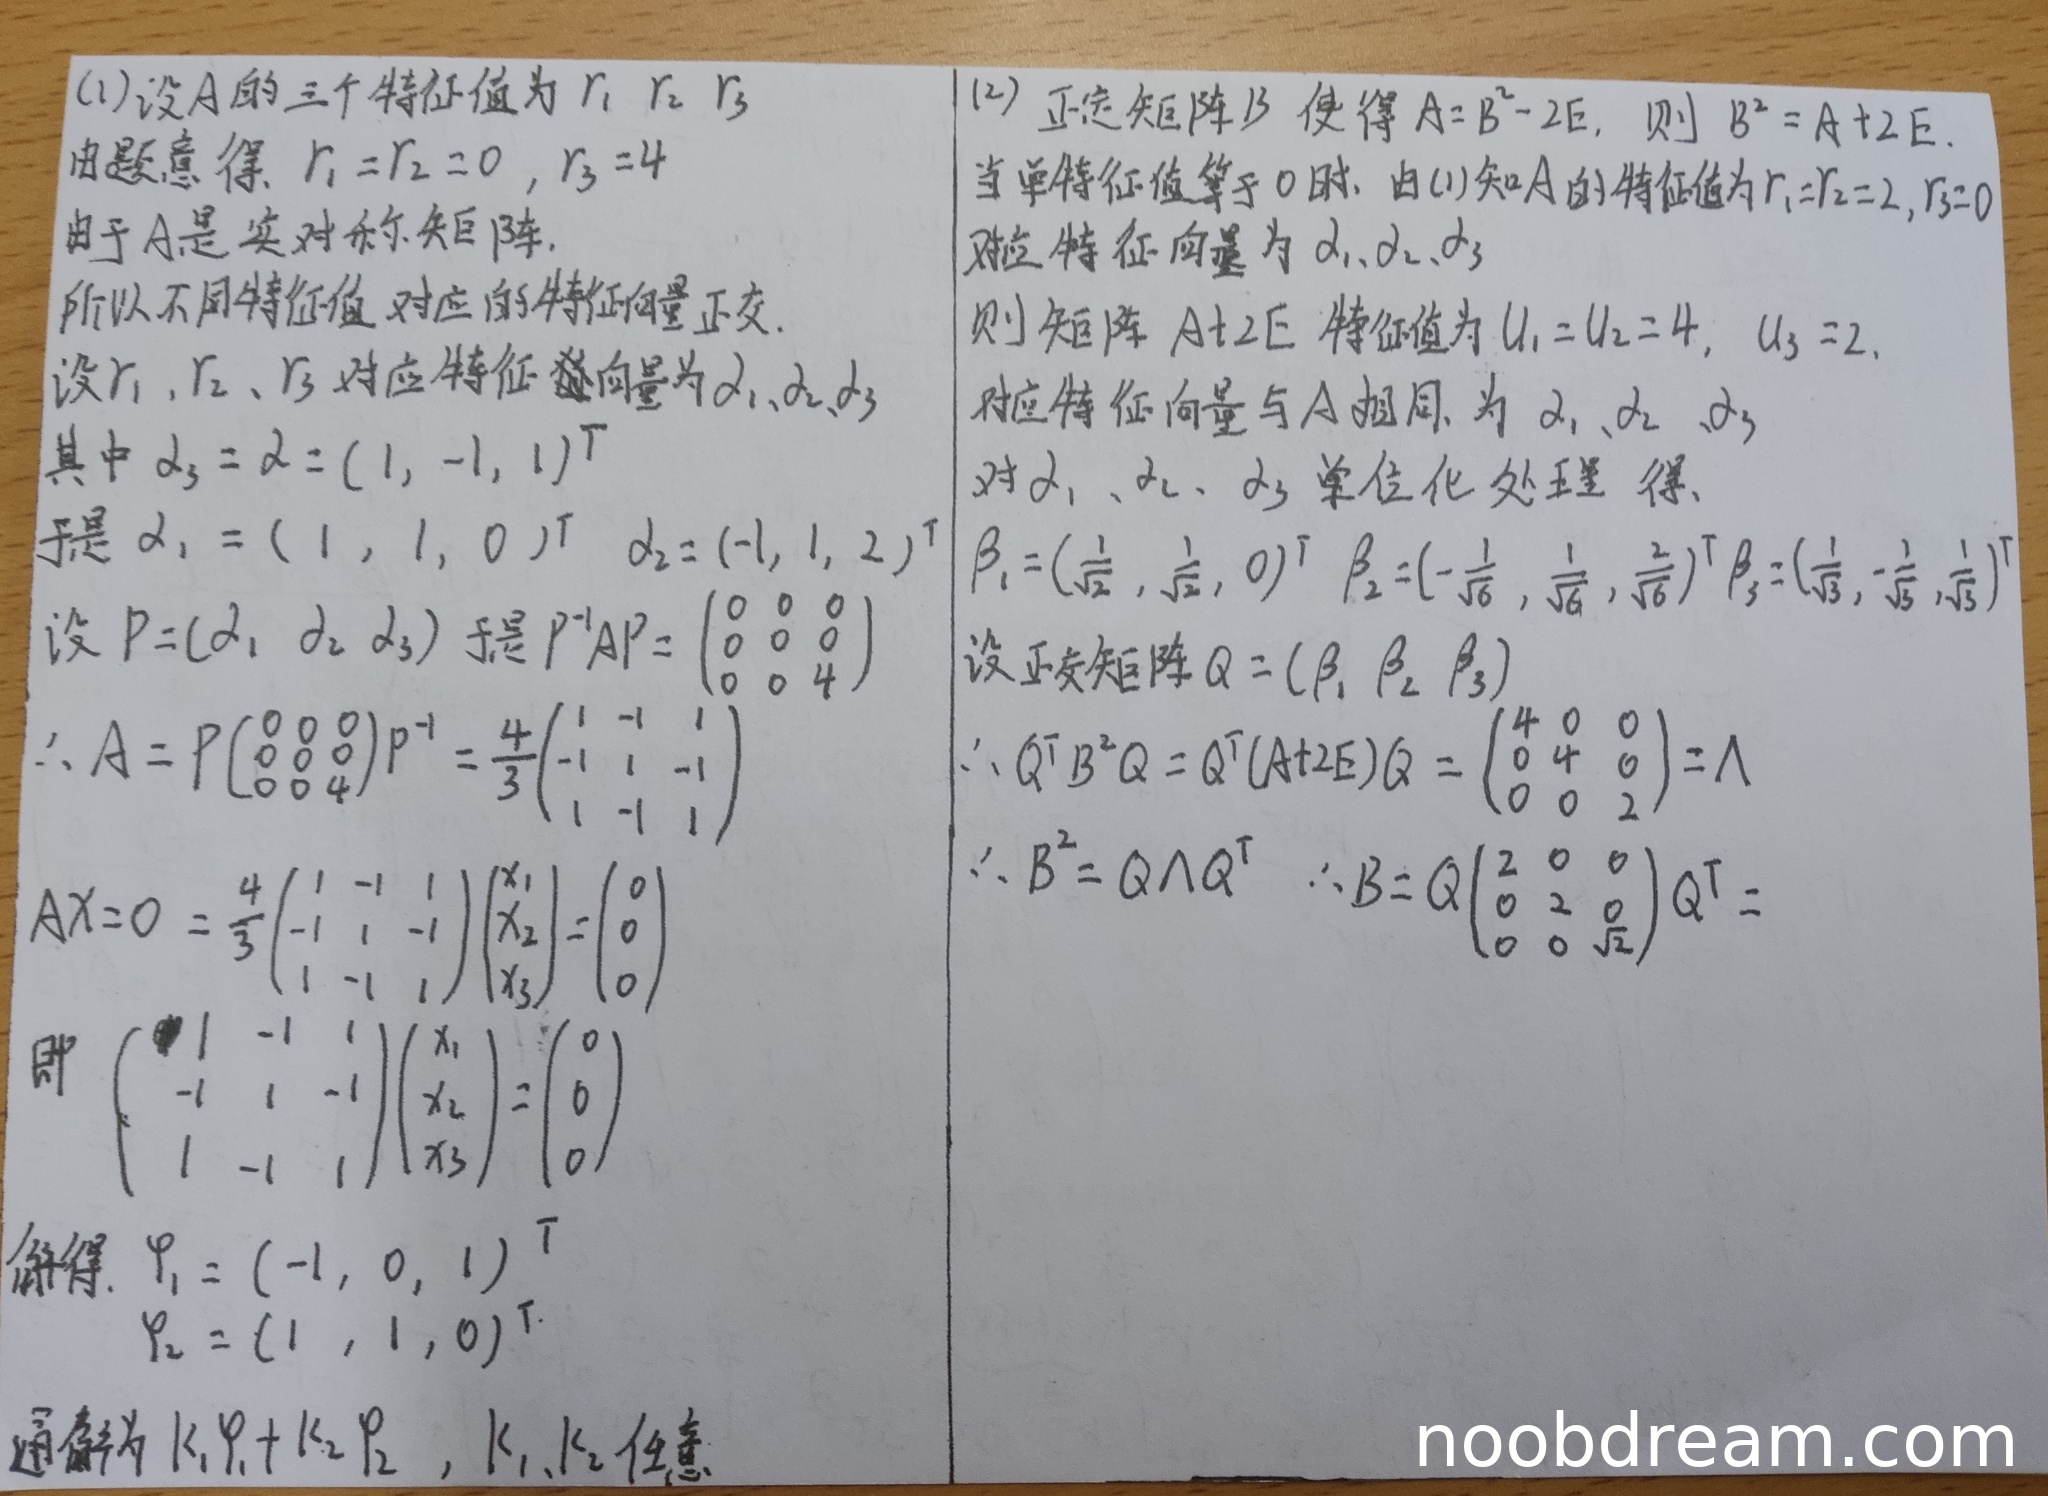 (1) 设A的三个特征值为 r₁ r₂ r₃
由题意得. r₁=r₂=0, r₃=4
由于A是实对称矩阵.
所以不同特征值对应的特征向量正交.
设r₁、r₂、r₃对应特征向量为α₁、α₂、α₃
其中 α₃=α=(1, -1, 1)ᵀ
于是 α₁=(1, 1, 0)ᵀ α₂=(-1, 1, 2)ᵀ
设 P=(α₁ α₂ α₃) 于是 P⁻¹AP= (0 0 0; 0 0 0; 0 0 4)
∴ A = P(0 0 0; 0 0 0; 0 0 4)P⁻¹ = 4/3 (1 -1 1; -1 1 -1; 1 -1 1)
AX=0 = 4/3 (1 -1 1; -1 1 -1; 1 -1 1)(x₁; x₂; x₃) = (0; 0; 0)
即 (1 -1 1; -1 1 -1; 1 -1 1)(x₁; x₂; x₃) = (0; 0; 0)
解得. φ₁=(-1, 0, 1)ᵀ
φ₂=(1, 1, 0)ᵀ
通解为 k₁φ₁+k₂φ₂, k₁、k₂任意
(2) 正定矩阵B 使得 A=B²-2E. 则 B²=A+2E.
当单特征值等于0时. 由(1)知A的特征值为r₁=r₂=2, r₃=0
对应特征向量为 α₁、α₂、α₃
则矩阵 A+2E 特征值为 u₁=u₂=4, u₃=2.
对应特征向量与A相同. 为 α₁、α₂、α₃
对α₁、α₂、α₃ 单位化处理 得.
β₁=(1/√2, 1/√2, 0)ᵀ β₂=(-1/√6, 1/√6, 2/√6)ᵀ β₃=(1/√3, -1/√3, 1/√3)ᵀ
设正交矩阵Q=(β₁ β₂ β₃)
∴ QᵀB²Q = Qᵀ(A+2E)Q = (4 0 0; 0 4 0; 0 0 2) = Λ
∴ B²=QΛQᵀ ∴B=Q(2 0 0; 0 2 0; 0 0 √2)Qᵀ=
noobdream.com